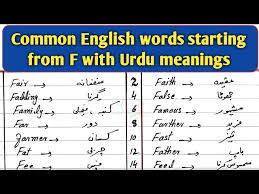 Common English words starting
from F with Urdu meanings
Fair → منصفانہ 2 Faith → عقیدہ
گرنا 4 False → جھوٹا
Family → کنبہ ، فیملی 6 Famous → مشہور
Far → دور 8 Farther → مزید
Farmer → کسان 10 Fast → تیز
Fat → چربی 12 Father → باپ
Fee → فیس 14 محسوس کرنا